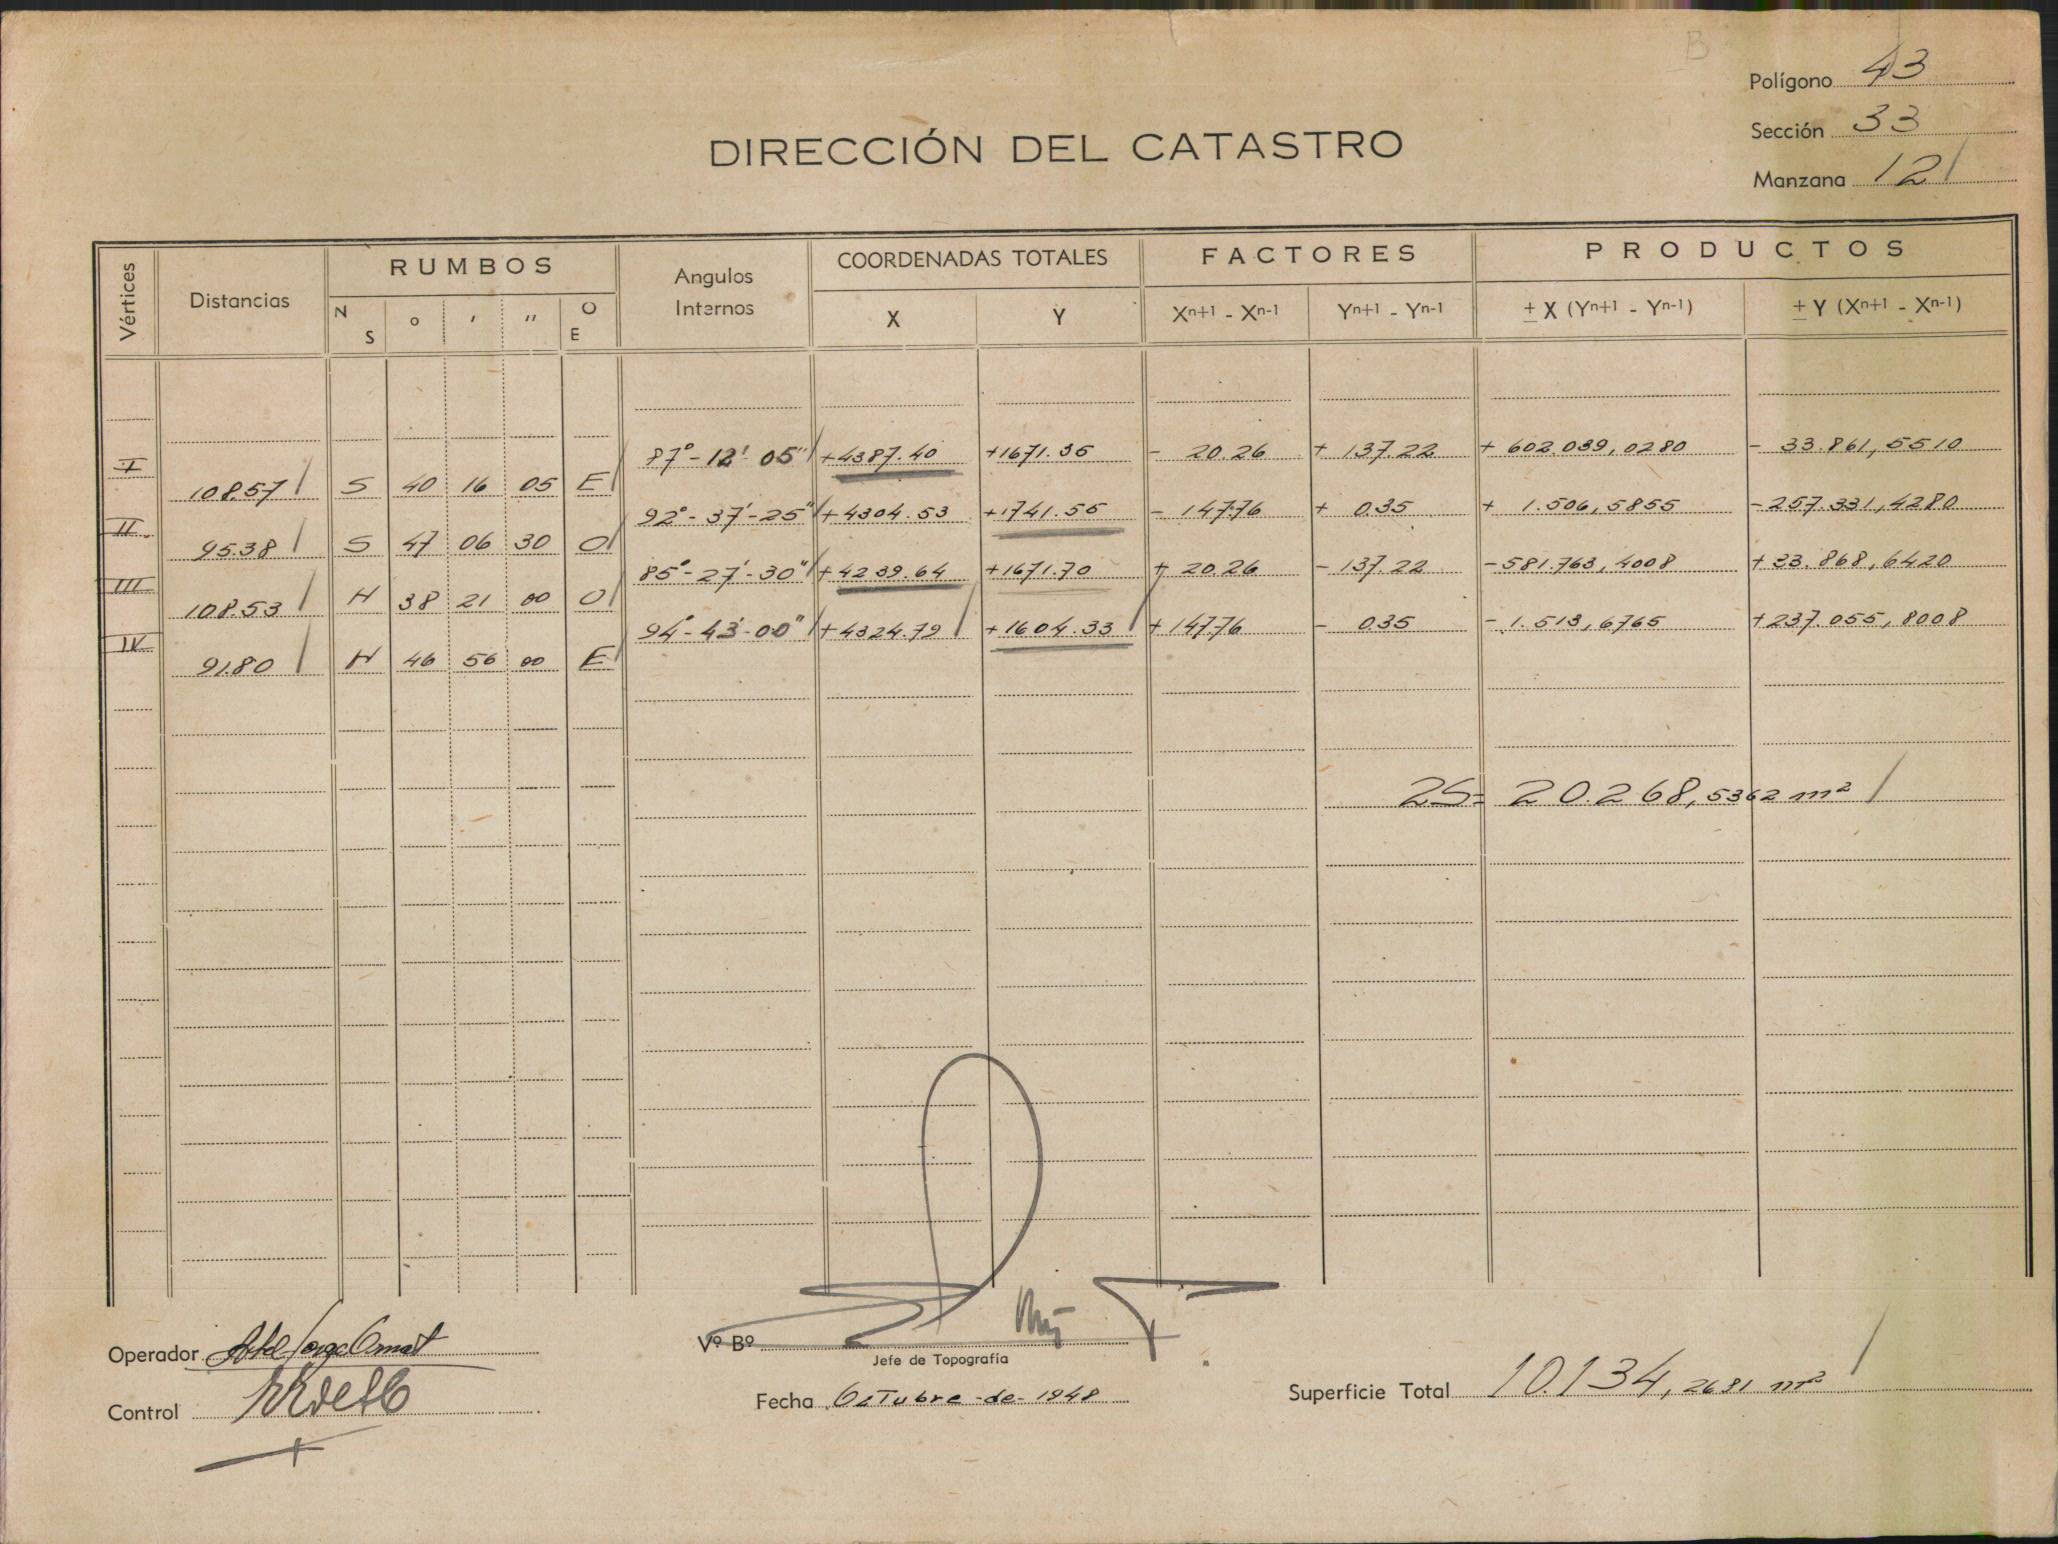 Polígono 43
Sección 33
Manzana 12
DIRECCIÓN DEL CATASTRO
Vértices Distancias RUMBOS Angulos Internos COORDENADAS TOTALES FACTORES PRODUCTOS
N S o ' " O E X Y Xn+1 - Xn-1 Yn+1 - Yn-1 ± X (Yn+1 - Yn-1) ± Y (Xn+1 - Xn-1)
I 87°-12'-05" +4387.40 +1671.35 - 20.26 + 137.22 + 602.039,0280 - 33.861,5510
108.57 S 40 16 05 E
II 92°-37'-25" +4304.53 +1741.55 - 147.76 + 0.35 + 1.506,5855 -257.331,4280
95.38 S 47 06 30 O
III 85°-27'-30" +4239.64 +1671.70 + 20.26 - 137.22 -581.763,4008 +33.868,6420
108.53 N 38 21 00 O
IV 94°-43'-00" +4324.79 +1604.33 +147.76 - 0.35 - 1.513,6765 +237.055,8008
91.80 N 46 56 00 E
2S= 20.268,5362 m²
Operador
Control
Vº Bº
Jefe de Topografía
Fecha Octubre-de-1948
Superficie Total 10.134,2681 m²